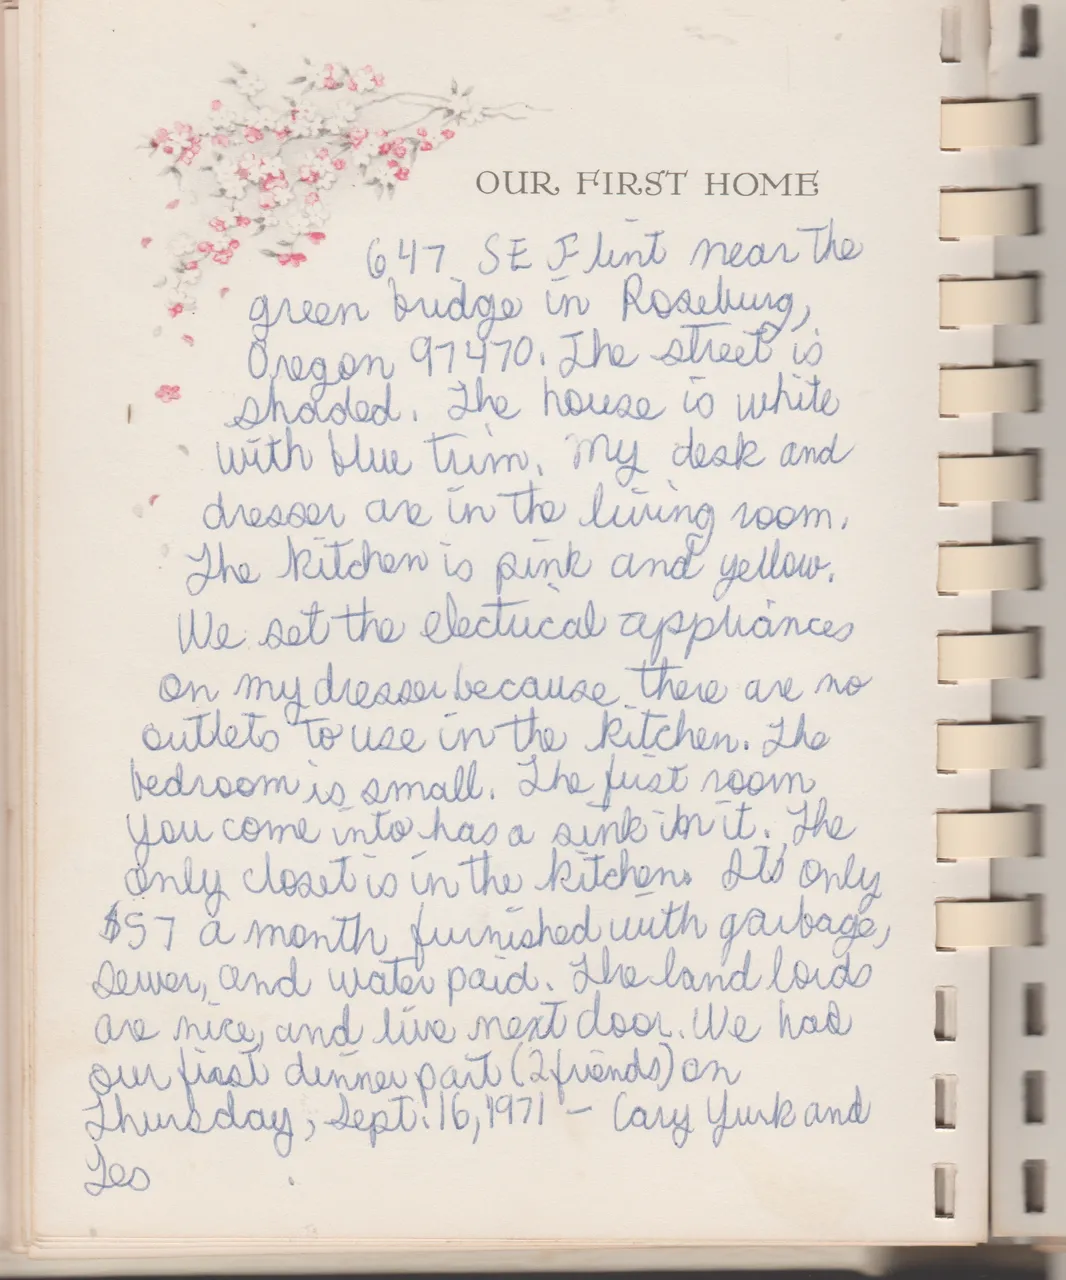 OUR FIRST HOME
647 SE Flint near the
green bridge in Roseburg,
Oregon 97470. The street is
shaded. The house is white
with blue trim. My desk and
dresser are in the living room.
The kitchen is pink and yellow.
We set the electrical appliances
on my dresser because there are no
outlets to use in the kitchen. The
bedroom is small. The first room
you come into has a sink in it. The
only closet is in the kitchen. Its only
$57 a month furnished with garbage,
sewer, and water paid. The land lords
are nice, and live next door. We had
our first dinner part (2 friends) on
Thursday, Sept. 16, 1971 - Cary Yurk and
Les